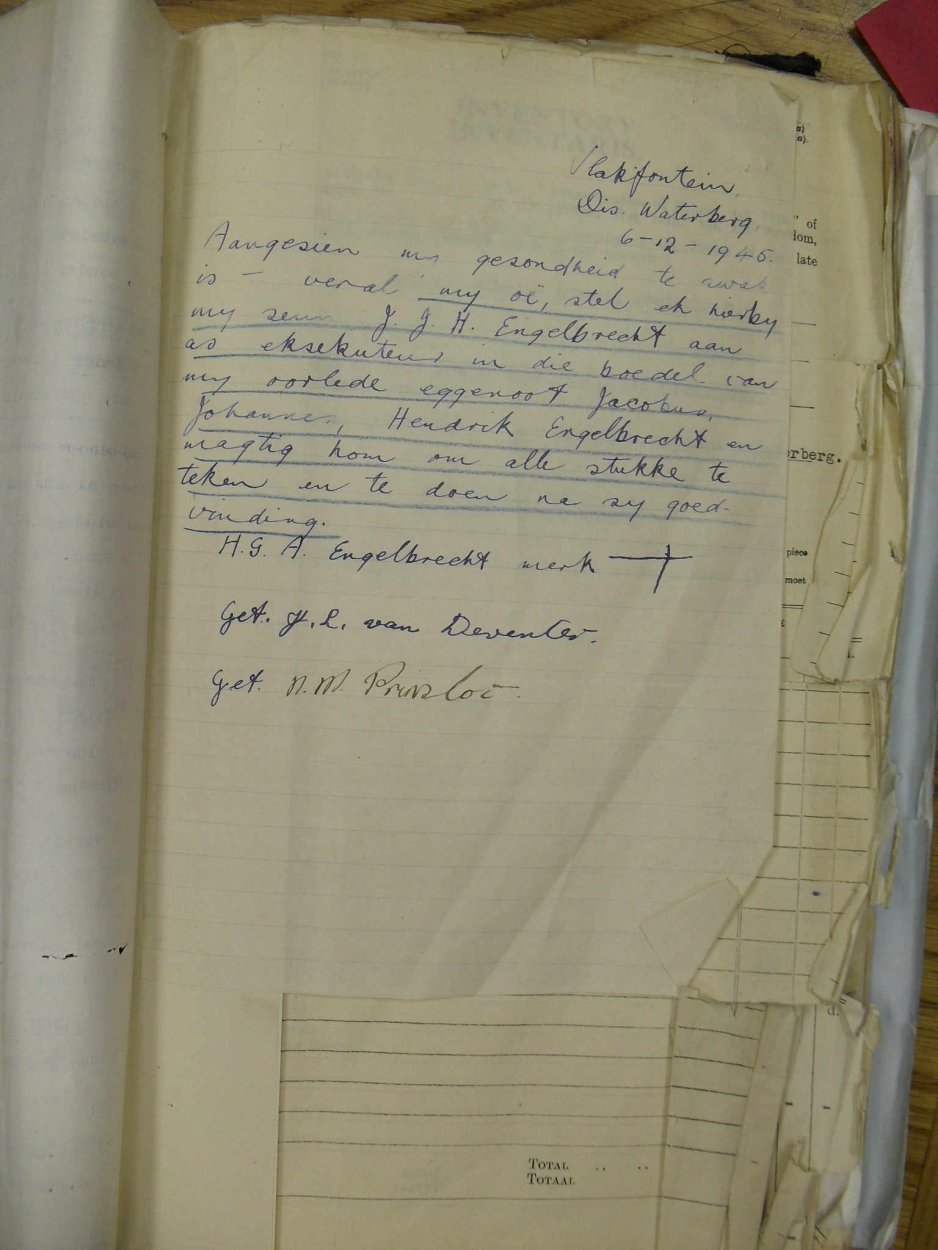 Vlakfontein,
Dis. Waterberg,
6-12-1945.
Aangesien my gesondheid te swak
is — veral my oë, stel ek hierby
my seun J. J. H. Engelbrecht aan
as eksekuteur in die boedel van
my oorlede eggenoot Jacobus,
Johannes, Hendrik Engelbrecht en
magtig hom om alle stukke te
teken en te doen na sy goed-
vinding.
H. G. A. Engelbrecht merk
Get. J. L. van Deventer.
Get. N. M. Prinsloo.
INVENTORY
INVENTARIS
of
dom,
late
erberg.
piece
moet
d.
TOTAL .. ..
TOTAAL